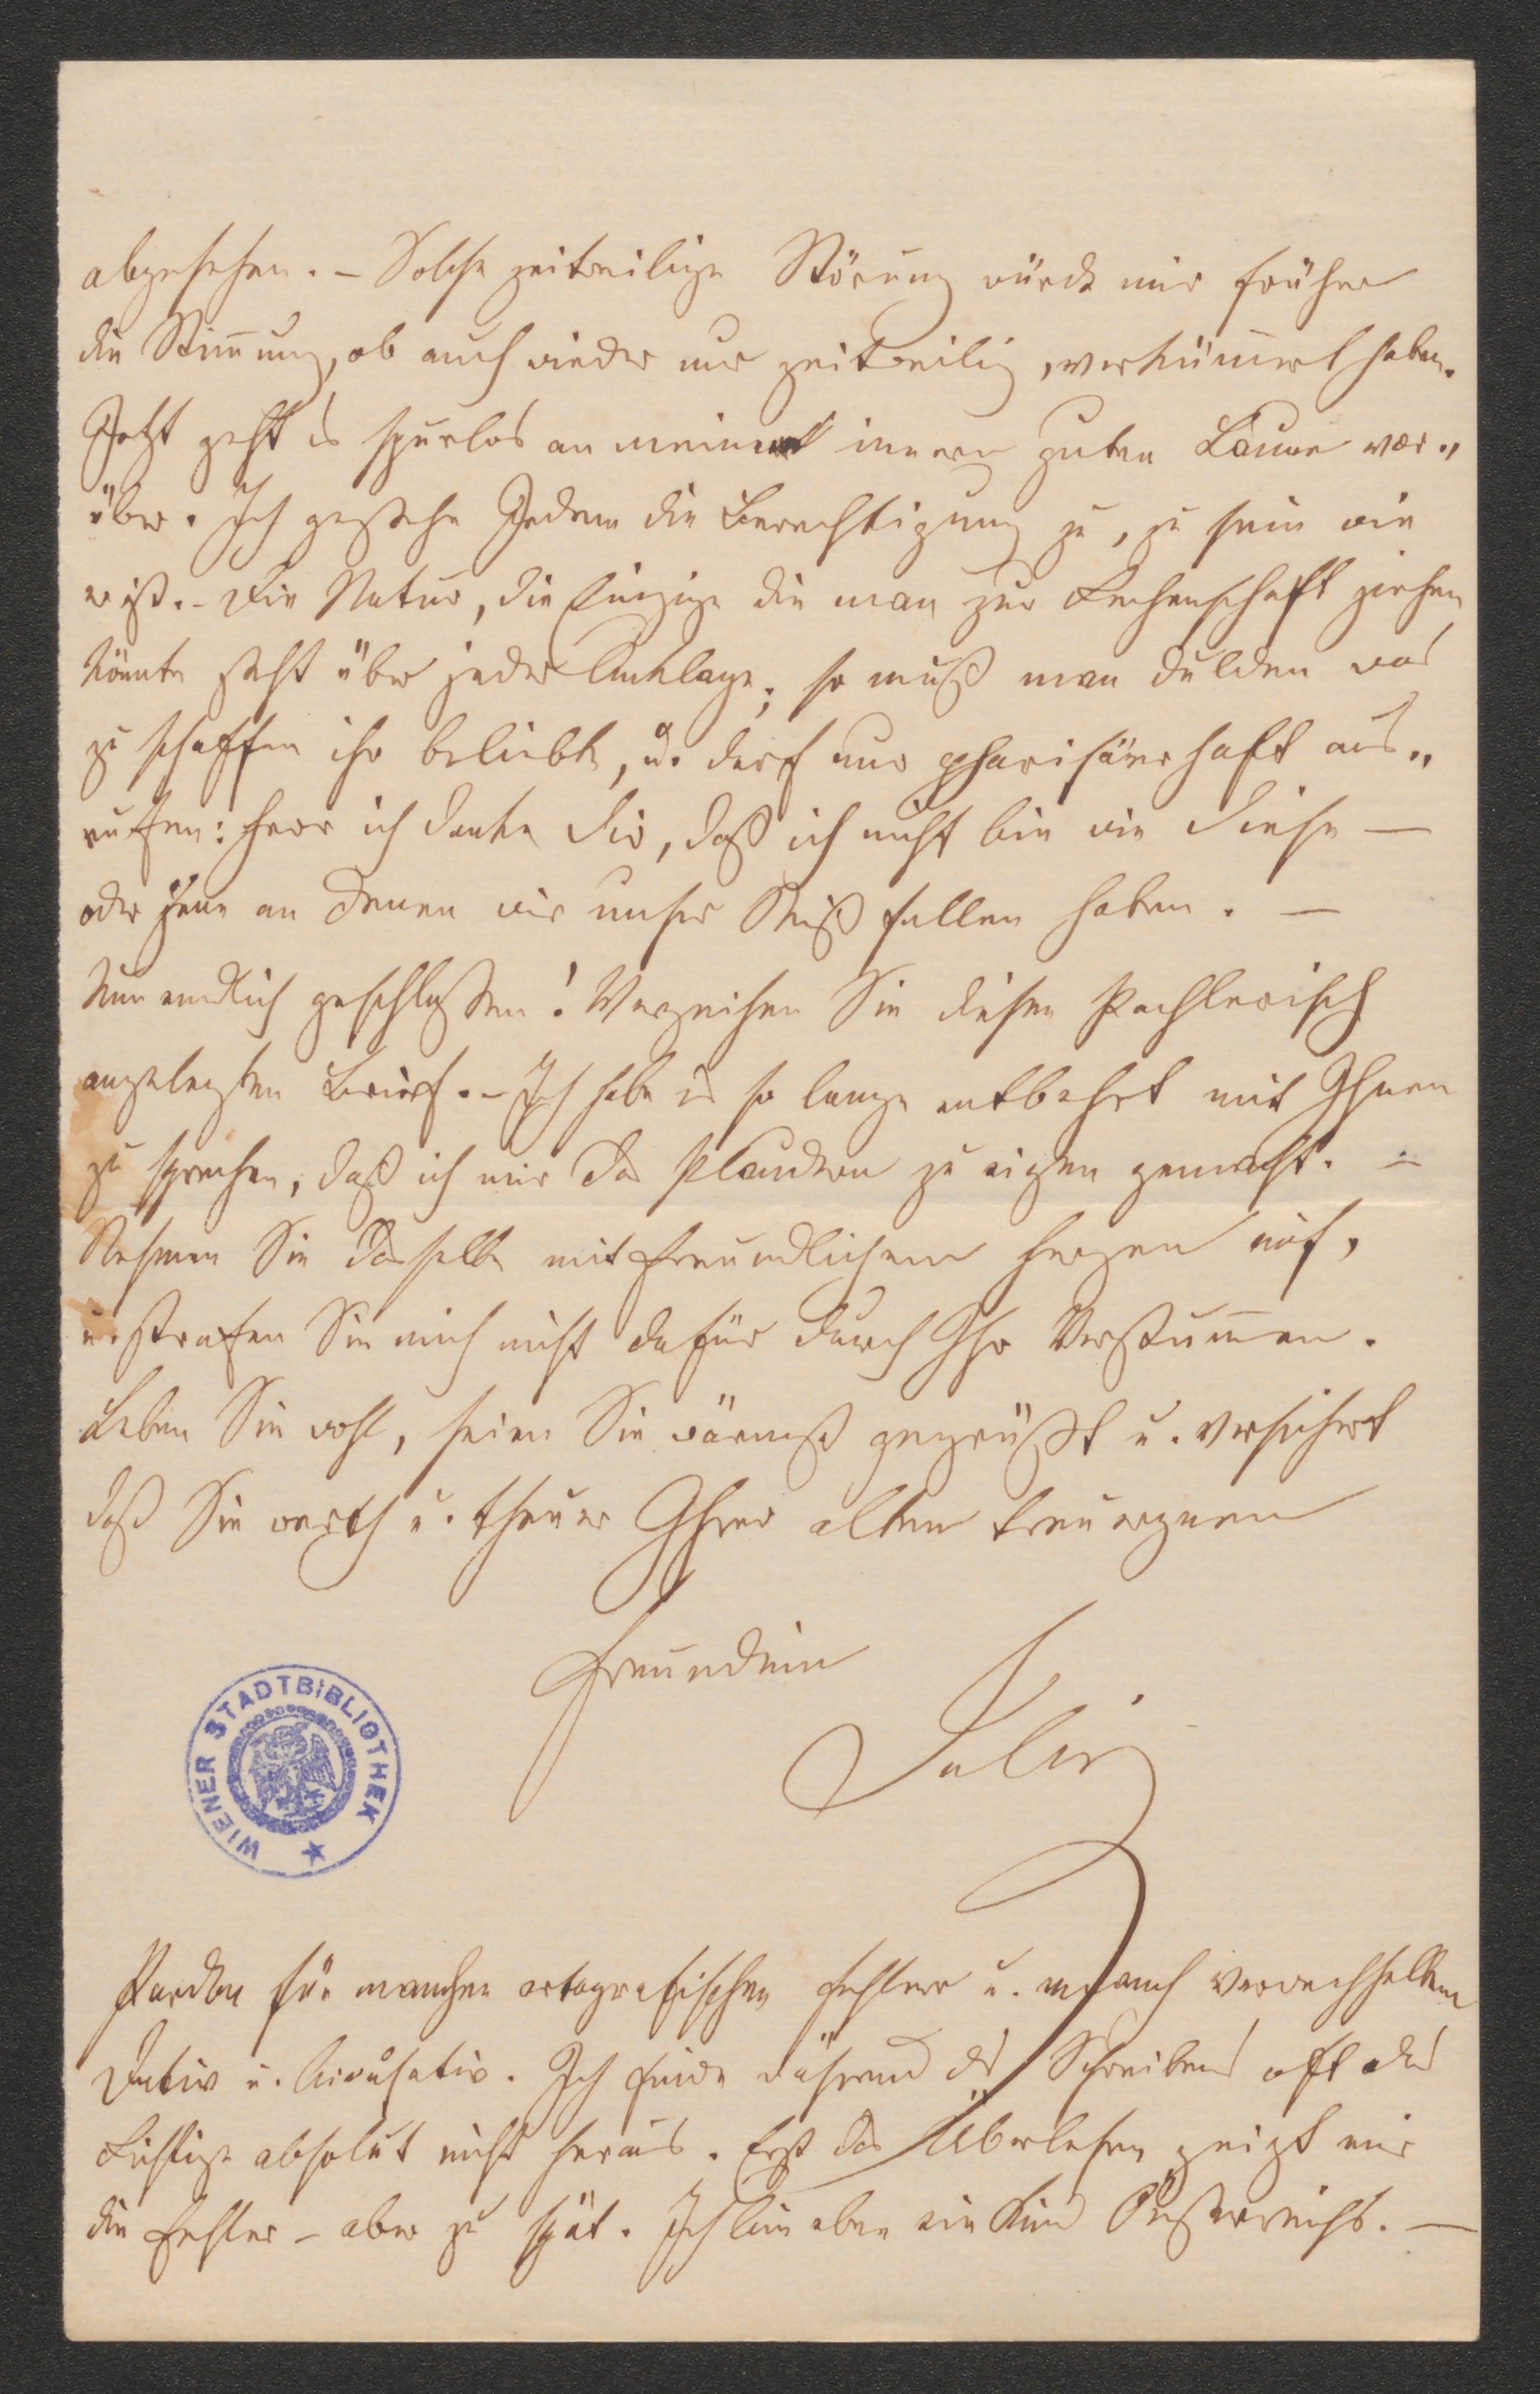 abgesehen. – Solche zeitweilige Störung würde mir früher
die Stimmung, ob auch wieder nur zeitweilig, verkümert haben.
Jetzt geht es spurlos an meiner innern guten Laune vor„
über. Ich gestehe Jedem die Berechtigung zu, zu sein wie
er ist. – Die Natur, die Einzige die man zur Rechenschaft ziehen
könnte steht über jeder Anklage; so muß man dulden was
zu schaffen ihr beliebte, u. darf nur pharisäerhaft aus„
rufen: Herr ich danke dir, daß ich nicht bin wie diese —
oder jene an denen wir unser Mißfallen haben. —
Nun endlich geschlossen! Verzeihen Sie diesen Pachlerisch
angelegten Brief. – Ich habe es so lange entbehrt mit Ihnen
zu sprechen, daß ich mir das Plaudern zu eigen gemacht. –
Nehmen Sie dasselbe mit freundlichem Herzen auf,
u. strafen Sie mich nicht dafür durch Ihr Verstumen.
Leben Sie wohl, seien Sie wärmst gegrüßt u. versichert
daß Sie werth u. theuer Ihrer alten treuergnen
Freundin
WIENER STADTBIBLIOTHEK
Pardon für manchen ortografischen Fehler u. auch verwechselten
Dativ u. Accusativ. Ich finde während des Schreibens oft das
Richtige absolut nicht heraus. Erst das Überlesen zeigt mir
die Fehler – aber zu spät. Ich bin eben ein Kind Oesterreichs. —